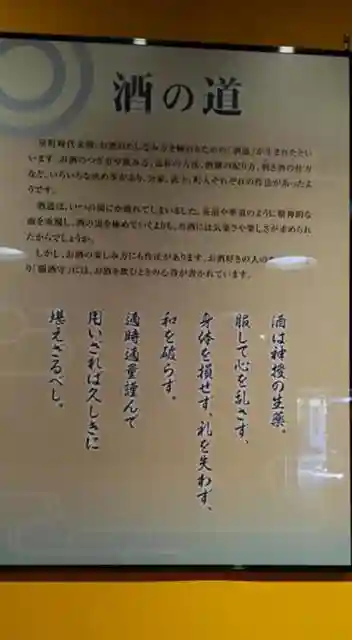 酒の道
室町時代末期、お酒のたしなみ方を極めるための「酒道」が生まれたとい
います。お酒のつぎ方や飲み方、
など、いろいろな決め事があり、公家、武士、町人それぞれの作法があったよ
うです。
酒道は、いつの間にか廃れてしまいました。茶道や華道のように精神的な
面を重視し、酒の道を極めていくよりも、お酒には気楽さや楽しさが求められ
たからでしょうか。
しかし、お酒の楽しみ方にも作法があります。お酒好きの人の
り「服酒守」には、お酒を飲むときの心得が書かれています。
酒は神授の生薬、
服して心を乱さず、
身体を損せず、礼を失わず、
和を破らす。
適時適量謹んで
用いざれば久しきに
堪えさるべし。